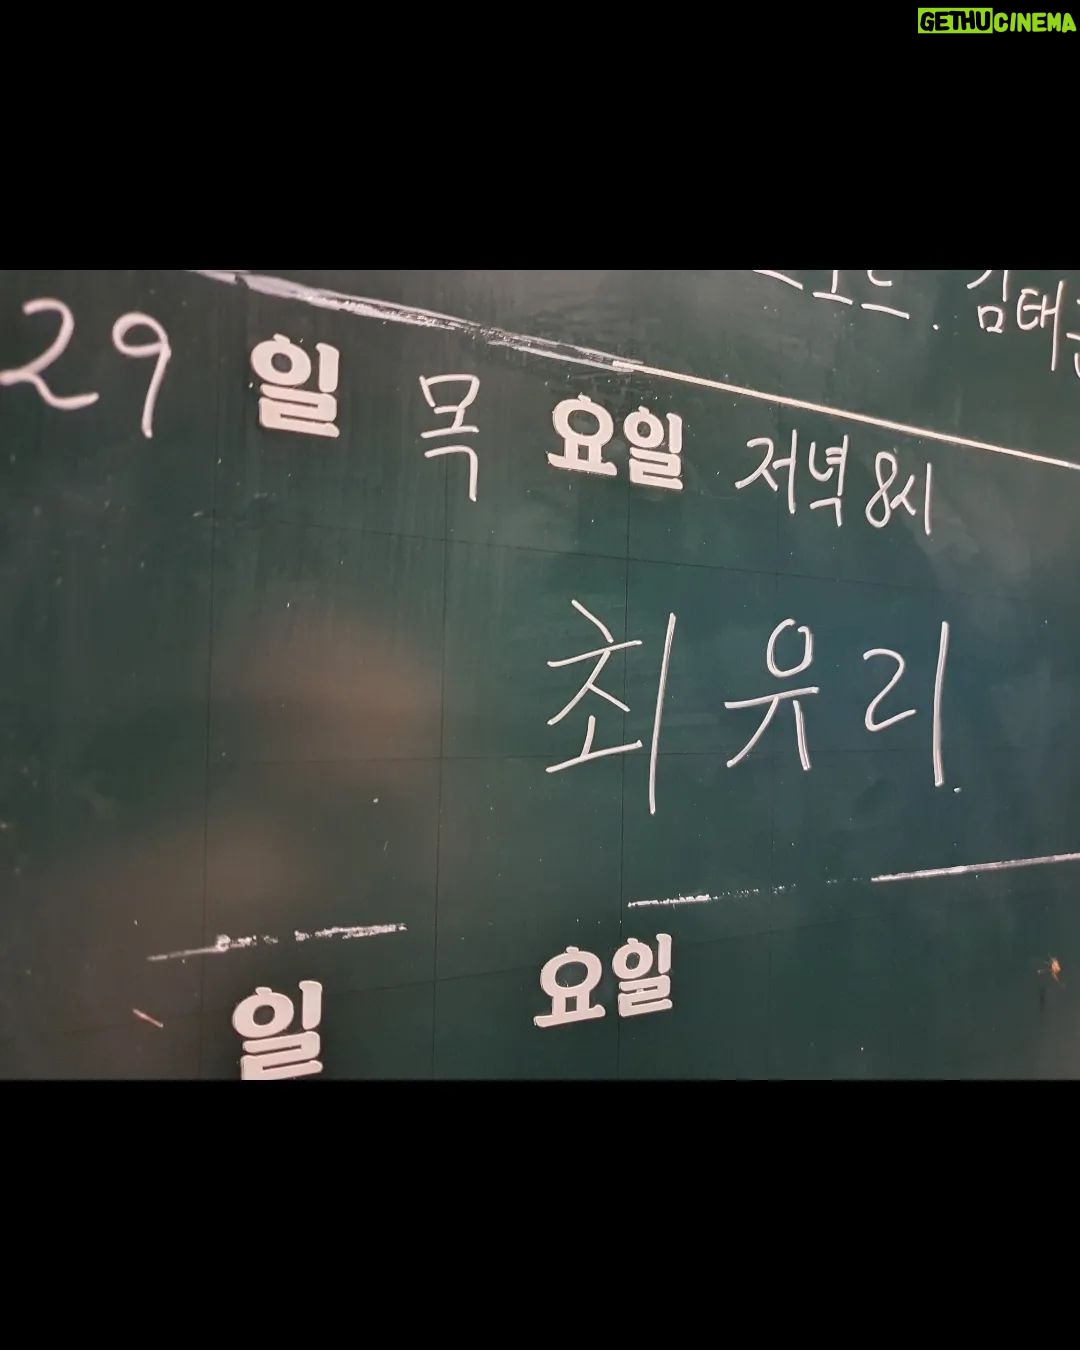 GETHUCINEMA
29 일 목 요일 저녁 8시
최유리.
일 요일